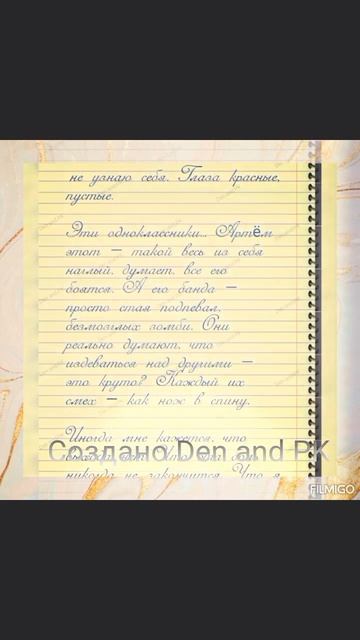 не узнаю себя. Глаза красные,
пустые.
Эти одноклассники... Артём
этот — такой весь из себя
наглый, думает, все его
боятся. А его банда —
просто стая подпевал,
безмозглых зомби. Они
реально думают, что
издеваться над другими —
это круто? Каждый их
смех — как нож в спину.
Иногда мне кажется, что
Создано Den and PK
никогда не закончится. Что я
FILMIGO